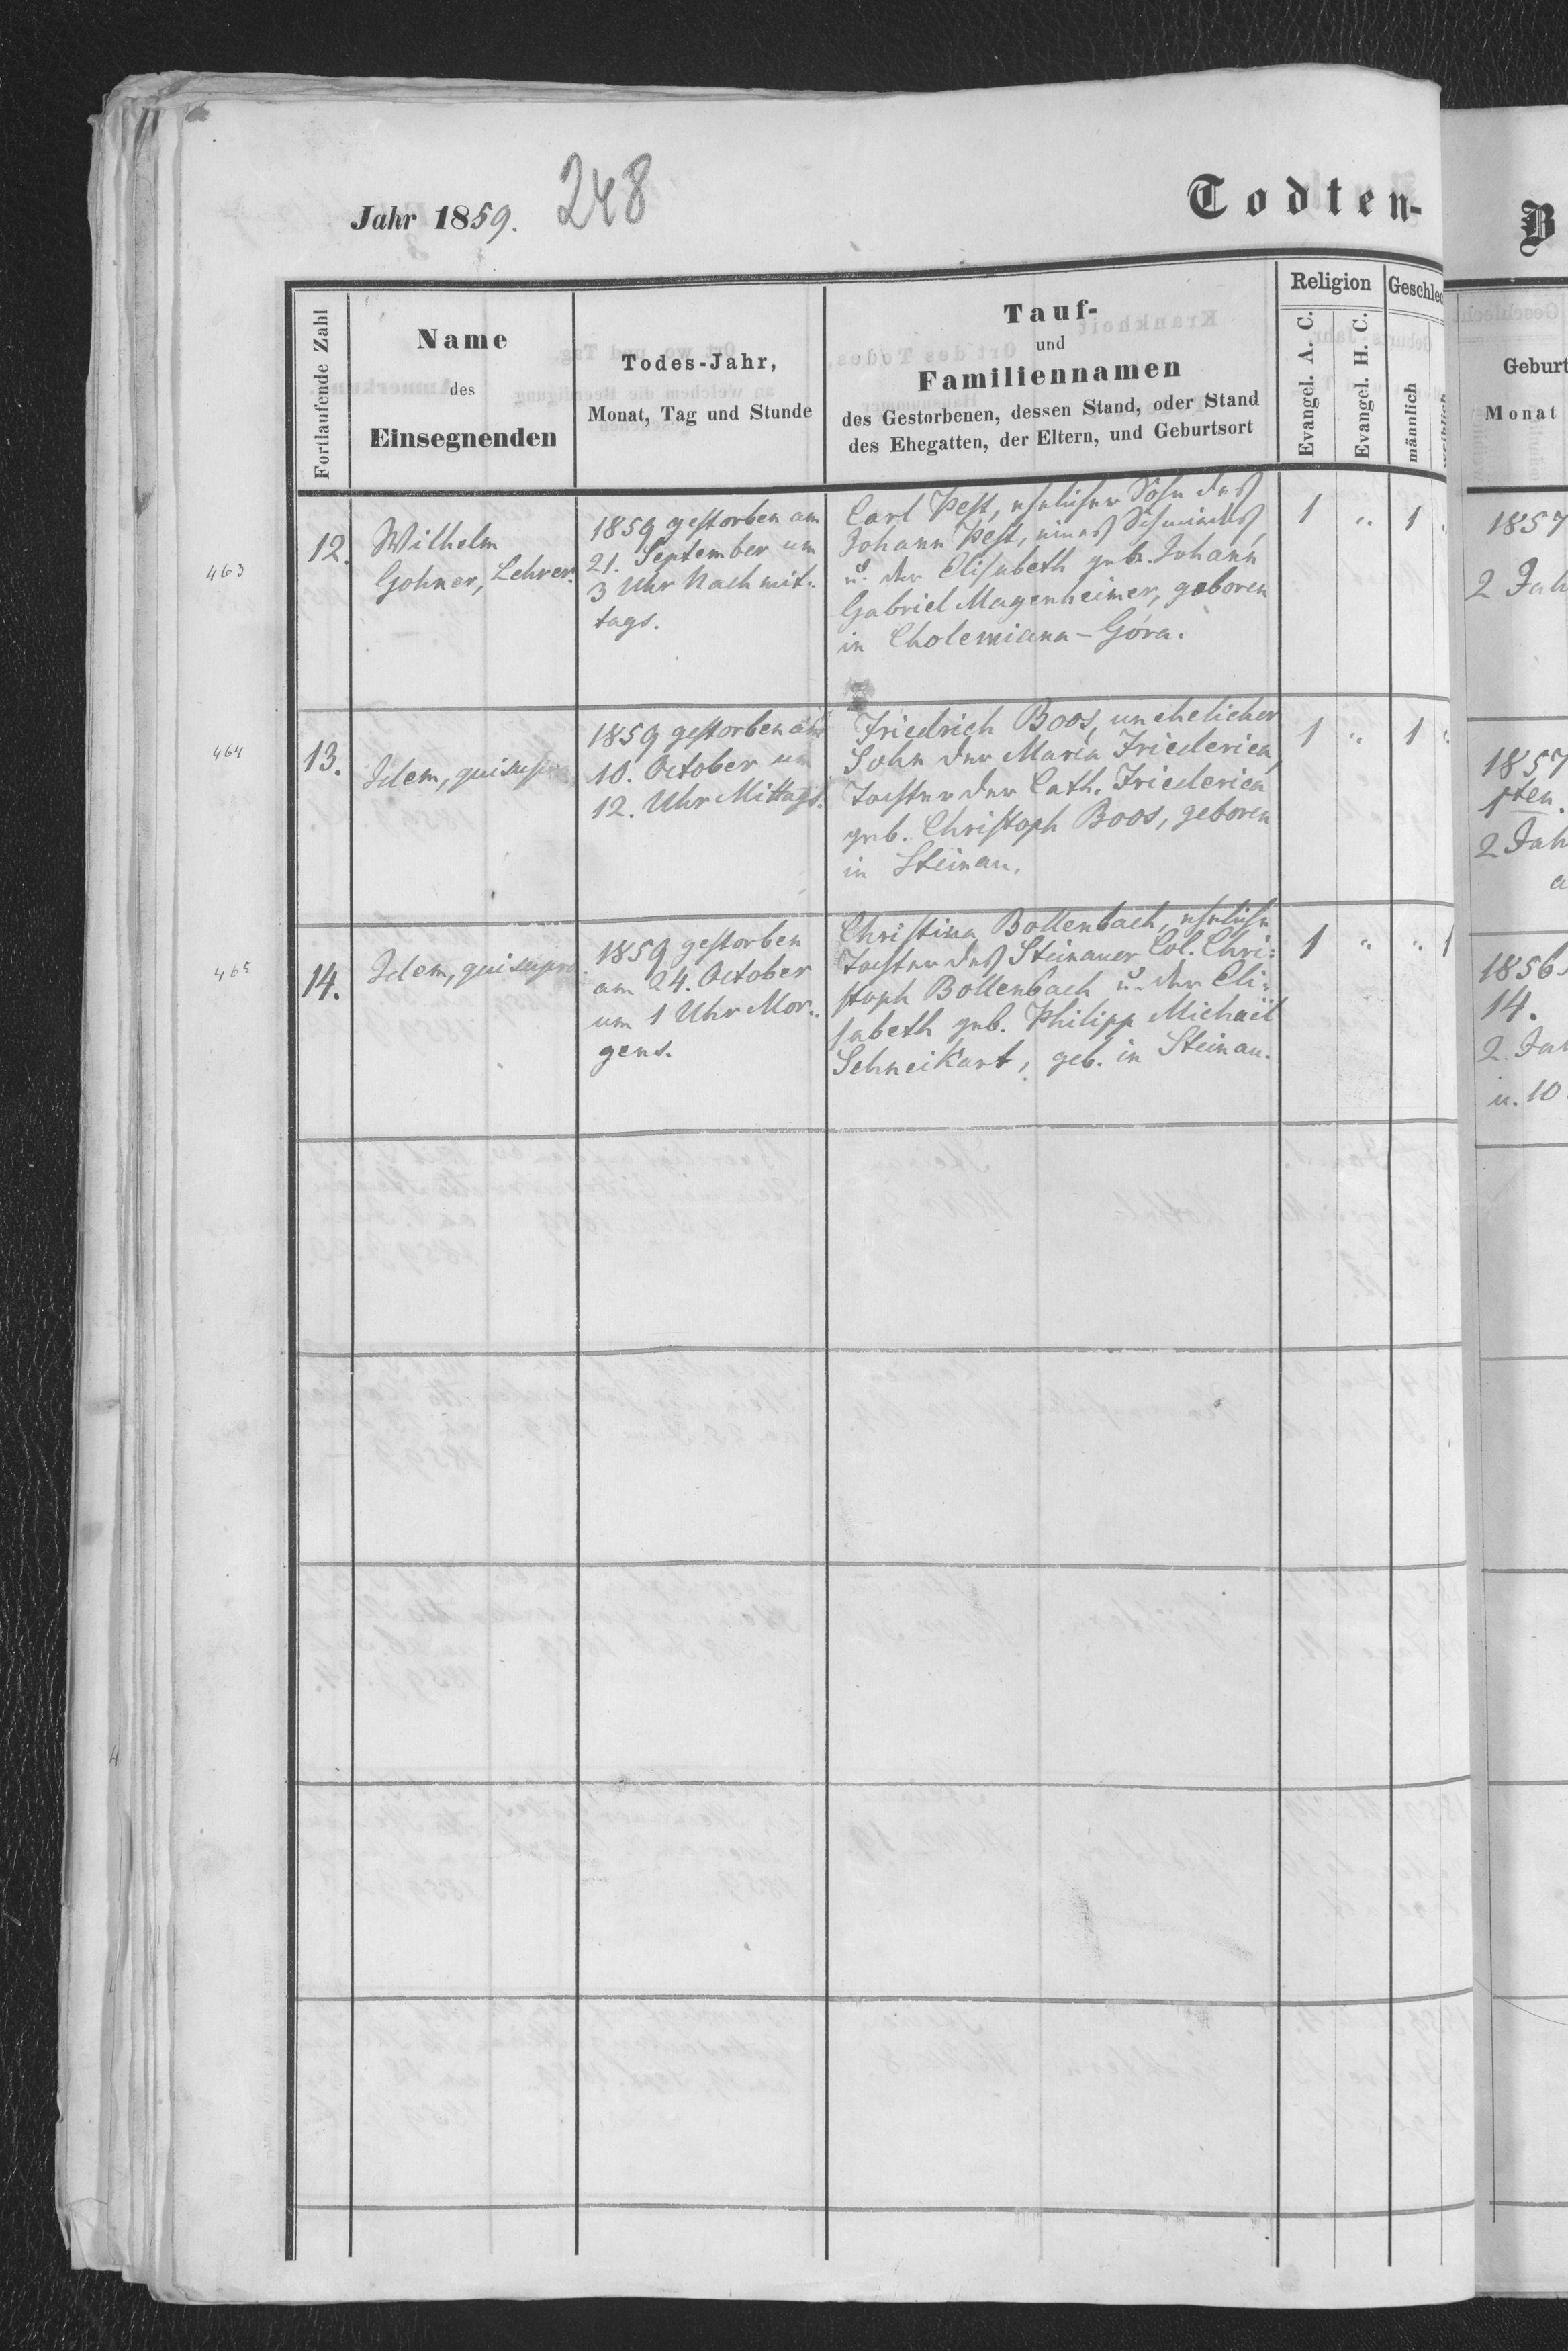 Jahr 1859.
248
Todten-
B
Fortlaufende Zahl
Name
des
Einsegnenden
Todes-Jahr,
Monat, Tag und Stunde
Tauf-
und
Familiennamen
des Gestorbenen, dessen Stand, oder Stand
des Ehegatten, der Eltern, und Geburtsort
Religion
Evangel. A. C.
Evangel. H. C.
Geschlec
männlich
weiblich
Geburt
Monat
463
12.
Wilhelm
Gohner, Lehrer.
1859 gestorben am
21. September um
3 Uhr Nachmit-
tags.
Carl Pest, ehelicher Sohn des
Johann Pest, eines Schmiedes
u. der Elisabeth geb. Johann
Gabriel Magenheimer, geboren
in Cholemiana-Góra.
1 " 1
1857
2 Jah
464
13.
Idem, qui supra
1859 gestorben am
10. October um
12. Uhr Mittags.
Friedrich Boos, unehelicher
Sohn der Maria Friederica,
Tochter der Cath. Friederica
geb. Christoph Boos, geboren
in Steinau.
1 " 1 "
1857
1ten.
2 Jah
a
465
14.
Idem, qui supra
1859 gestorben
am 24. October
um 1 Uhr Mor-
gens.
Christina Bollenbach, eheliche
Tochter des Steinauer Col. Chri-
stoph Bollenbach u. der Eli-
sabeth geb. Philipp Michael
Schneikart, geb. in Steinau.
1 " " 1
1856
14.
2. Jah
u. 10